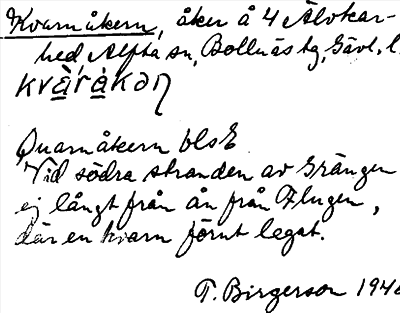 Kvarnåkern, åker å 4 Älvkar-
hed Alfta sn, Bollnäs tg, Gävl. l.
kvà̱rå̀kən
Quarnåkern blsE
Vid södra stranden av Grängen
ej långt från ån från Flugen,
där en kvarn förut legat.
T. Birgerson 194